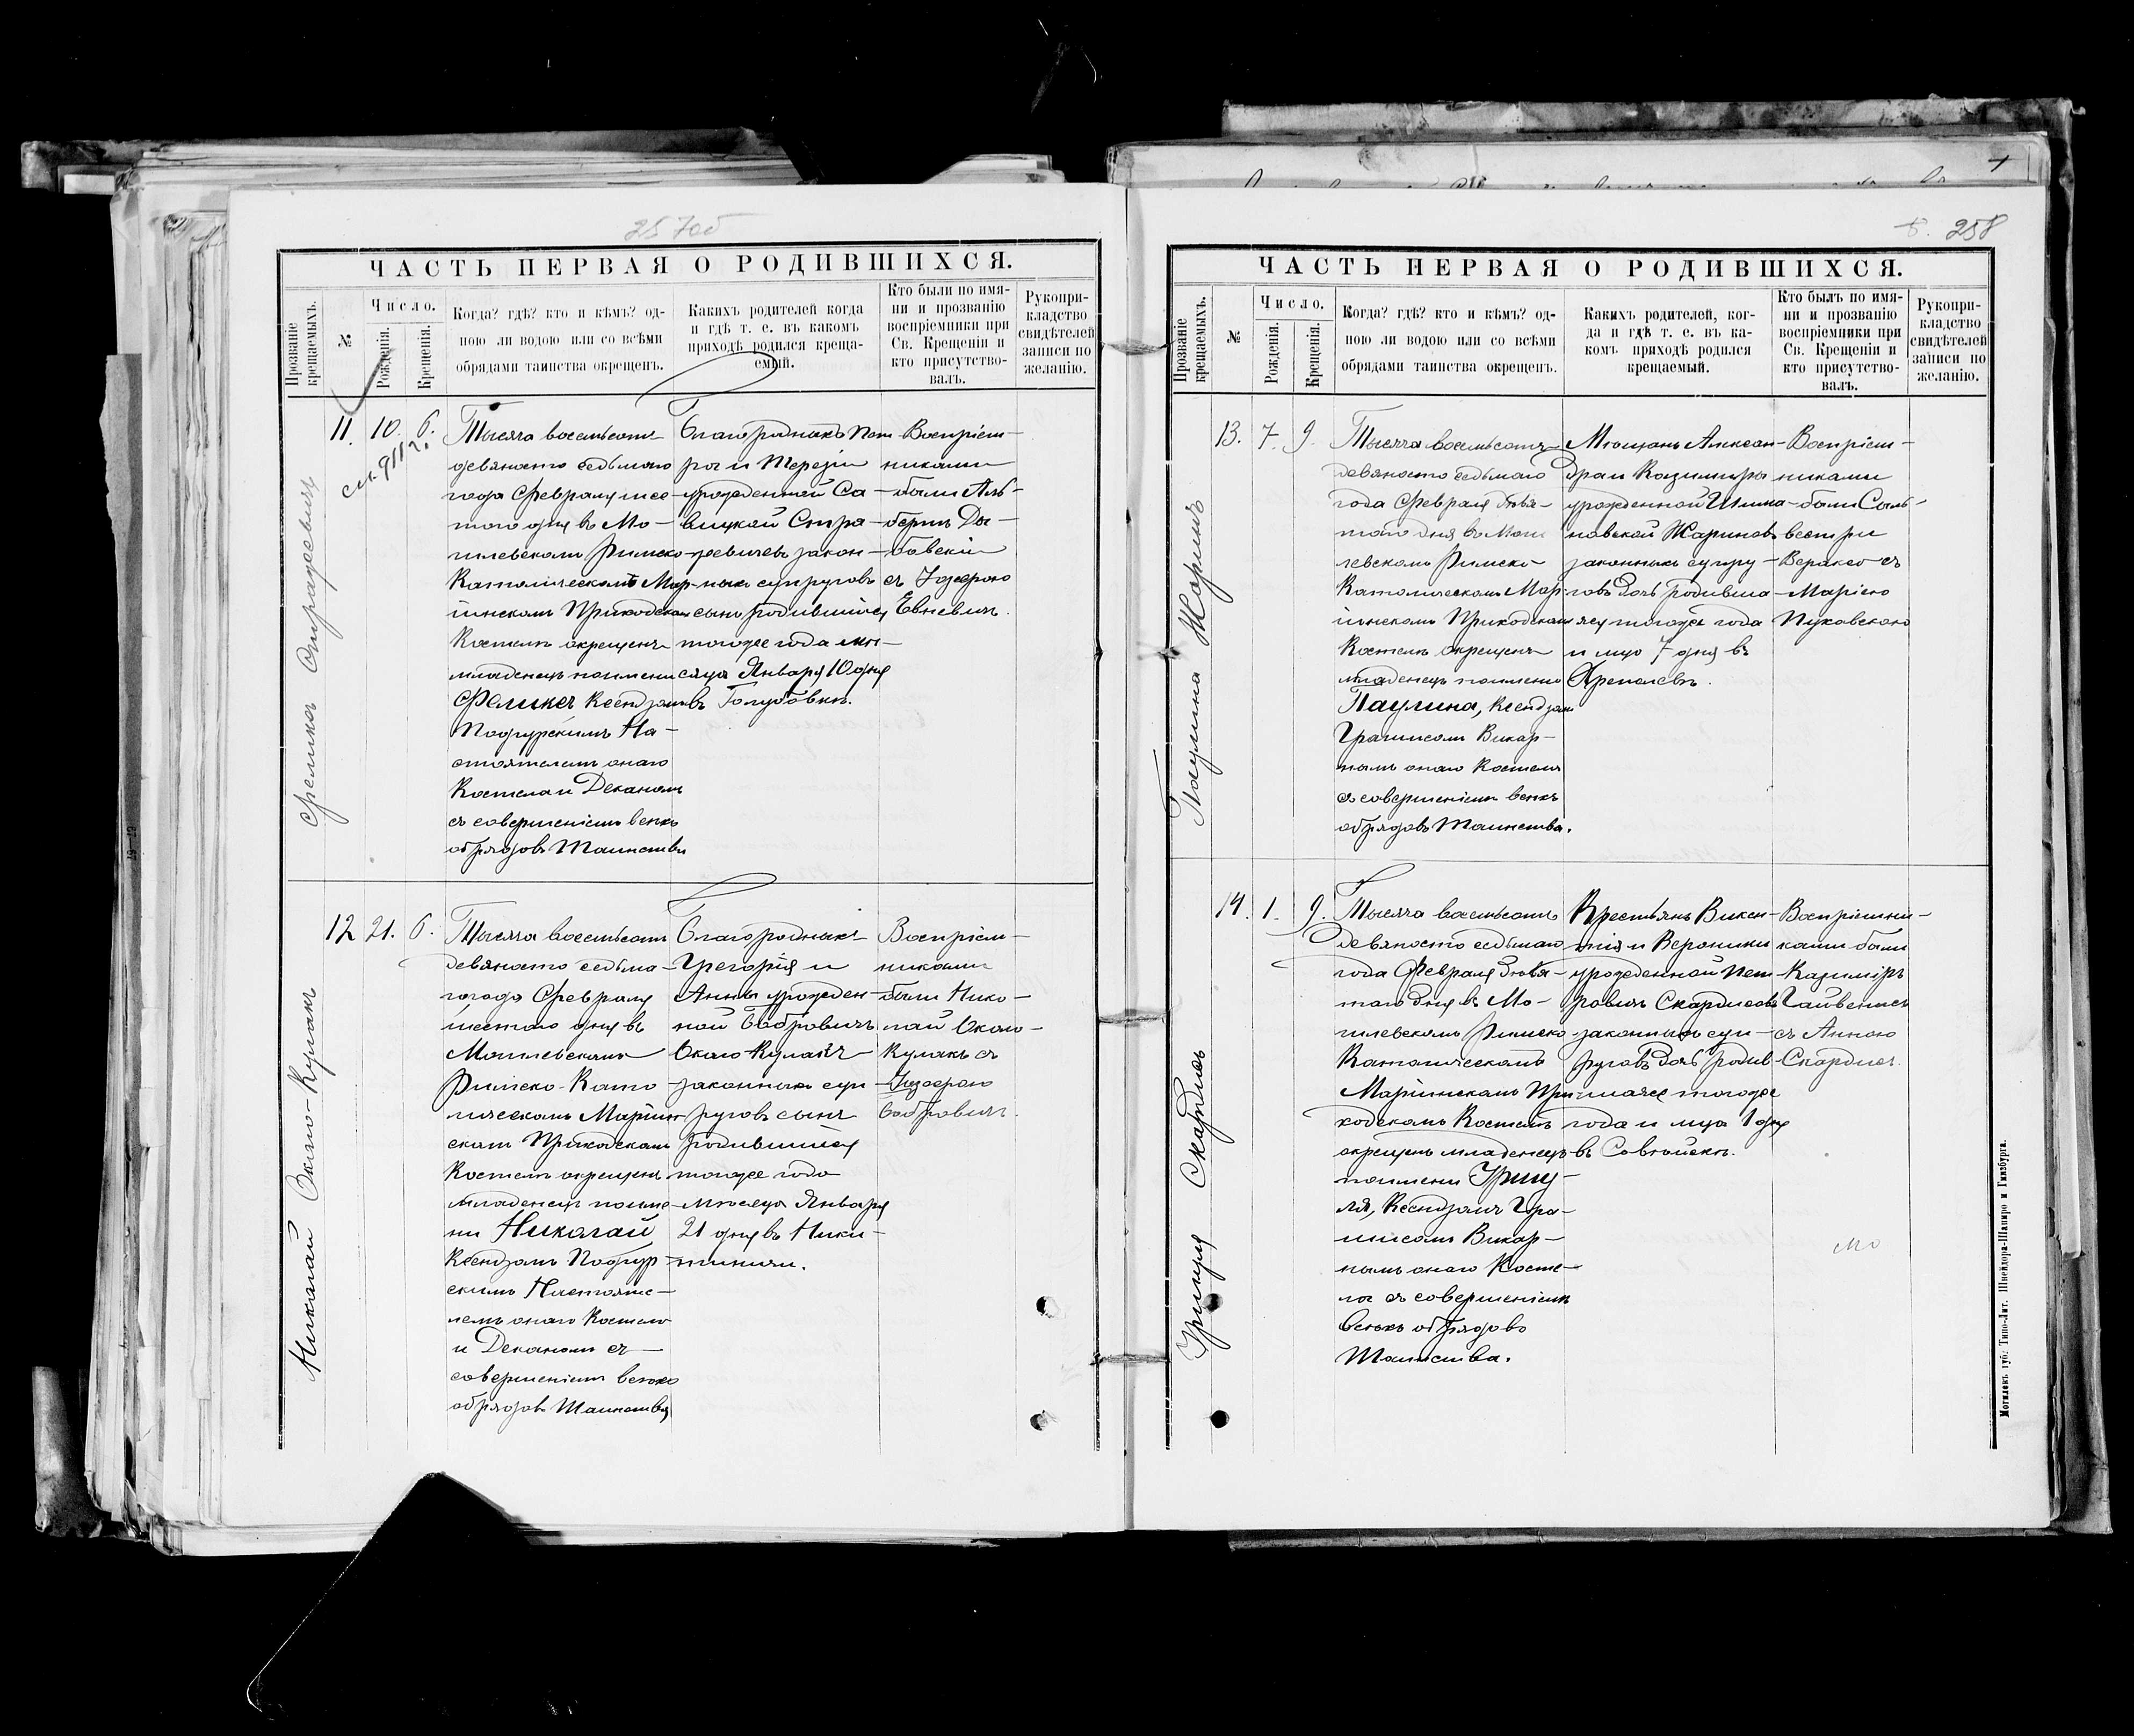 257об
ЧАСТЬ ПЕРВАЯ О РОДИВШИХСЯ.
Прозваніе крещаемыхъ.
№
Число.
Рожденія.
Крещенія.
Когда? гдѣ? кто и кѣмъ? од-
ною ли водою или со всѣми
обрядами таинства окрещенъ.
Какихъ родителей когда
и гдѣ т. е. въ какомъ
приходѣ родился креща-
емый.
Кто были по имя-
ни и прозванію
воспріемники при
Св. Крещеніи и
кто присутство-
валъ.
Рукопри-
кладство
свидѣтелей
записи по
желанію.
Феликсъ
11.
10.
6.
Тысяча восемьсотъ
девяносто седьмого
года Февраля шес-
того дня въ Мо-
гилевскомъ Римско-
Католическомъ Мар-
іинскомъ Приходскомъ
Костелѣ окрещенъ
младенецъ по имени
Феликсъ Ксендзомъ
Подгурскимъ На-
стоятелемъ онаго
Костела и Деканомъ
съ совершеніемъ всѣхъ
обрядовъ Таинства
Благородныхъ Пет-
ра и Терезіи
урожденной Са-
вицкой
законныхъ супруговъ
сынъ родившійся
того же года мѣ-
сяца Января 10 дня
въ Голубовкѣ.
Воспріем-
никами
были Аль-
бертъ Ды-
бовскій
съ Юзефою
Евневичъ.
Николай Около-Кулакъ
12
21.
6.
Тысяча восемьсотъ
девяносто седьма-
го года Февраля
шестаго дня въ
Могилевскомъ
Римско-Като-
лическомъ Маріин-
скомъ Приходскомъ
Костелѣ окрещенъ
младенецъ по име-
ни Николай
Ксендзомъ Подгур-
скимъ Настояте-
лемъ онаго Костела
и Деканомъ съ
совершеніемъ всѣхъ
обрядовъ Таинства
Благородныхъ
Грегорія и
Анны урожден-
ной Бобровичъ
Около-Кулакъ
законныхъ суп-
руговъ сынъ
родившійся
того же года
мѣсяца Января
21 дня въ Ники-
тиничи.
Воспріем-
никами
были Нико-
лай Около-
Кулакъ съ
Юзефою
Бобровичъ.
258
ЧАСТЬ ПЕРВАЯ О РОДИВШИХСЯ.
Прозваніе крещаемыхъ.
№
Число.
Рожденія.
Крещенія.
Когда? гдѣ? кто и кѣмъ? од-
ною ли водою или со всѣми
обрядами таинства окрещенъ.
Какихъ родителей, ког-
да и гдѣ т. е. въ ка-
комъ приходѣ родился
крещаемый.
Кто былъ по имя-
ни и прозванію
воспріемники при
Св. Крещеніи и
кто присутство-
валъ.
Рукопри-
кладство
свидѣтелей
записи по
желанію.
Паулина Жоринъ
13.
7.
9.
Тысяча восемьсотъ
девяносто седьмаго
года Февраля девя-
таго дня въ Моги-
левскомъ Римско-
Католическомъ Мар-
іинскомъ Приходскомъ
Костелѣ окрещенъ
младенецъ по имени
Паулина, Ксендзомъ
Грагисомъ Викар-
нымъ онаго Костела
съ совершеніемъ всѣхъ
обрядовъ Таинства.
Мѣщанъ Алексан-
дра и Казимиры
урожденной
законныхъ супру-
говъ дочь родивша-
яся того же года
и мца 7 дня въ
Воспріем-
никами
были Силь-
вестри
съ
Маріею
Пуковскою
Урщуля Скардисъ
14.
1.
9.
Тысяча восемьсотъ
девяносто седьмаго
года Февраля девя-
таго дня въ Мо-
гилевскомъ Римско-
Католическомъ
Маріинскомъ При-
ходскомъ Костелѣ
окрещенъ младенецъ
по имени Урщу-
ля, Ксендзомъ Гра-
гисомъ Викар-
нымъ онаго Косте-
ла съ совершеніемъ
всѣхъ обрядовъ
Таинства.
Крестьянъ Викен-
тія и Вероники
урожденной Пет-
ровичъ Скардисовъ
законныхъ суп-
руговъ дочь родив-
шаяся того же
года и мца 1 дня
въ
Воспріемни-
ками были
Казиміръ
Гайвенисъ
съ Анною
Скардисъ.
Могилевъ губ. Типо-Лит. Шнейдора-Шапиро и Гинзбурга.